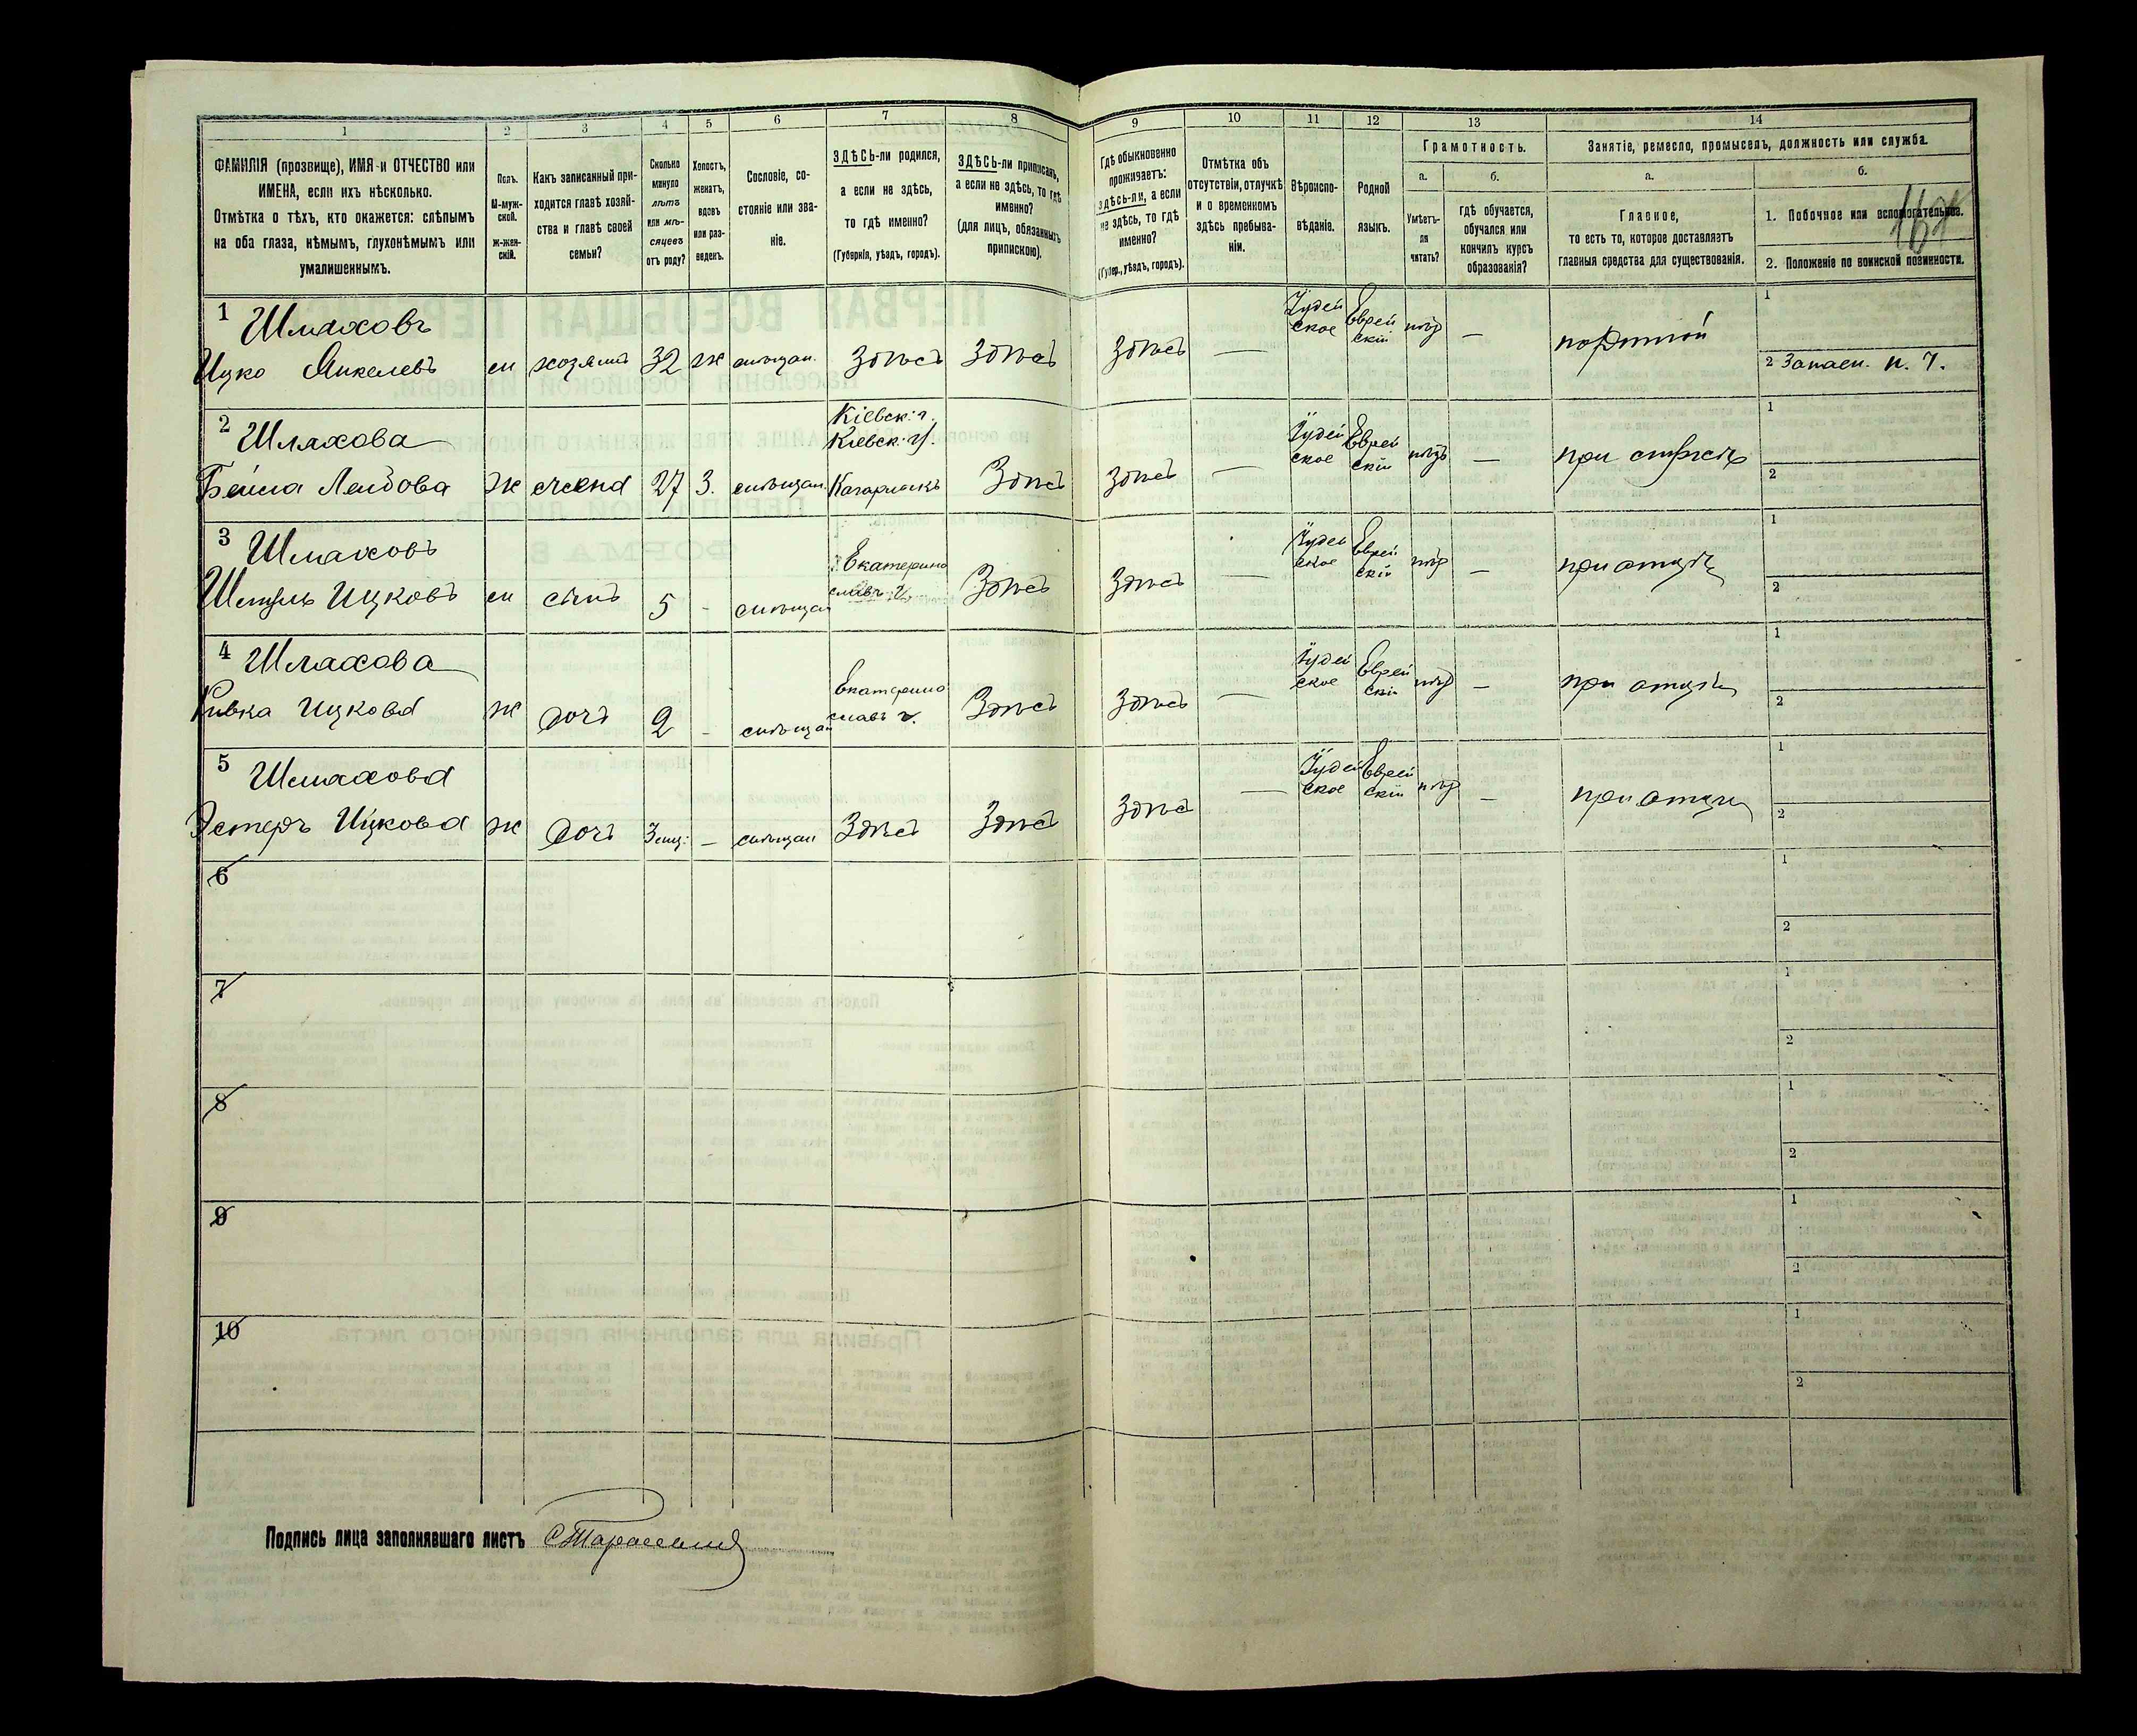 1 2 3 4 5 6 7 8 9 10 11 12 13 14
ФАМИЛІЯ (прозвище), ИМЯ и ОТЧЕСТВО или
ИМЕНА, если ихъ нѣсколько.
Отмѣтка о тѣхъ, кто окажется: слѣпымъ
на оба глаза, нѣмымъ, глухонѣмымъ или
умалишеннымъ.
Полъ.
М-муж-
ской.
Ж-жен-
скій.
Какъ записанный при-
ходится главѣ хозяй-
ства и главѣ своей
семьи?
Сколько
минуло
лѣтъ
или мѣ-
сяцевъ
отъ роду?
Холостъ,
женатъ,
вдовъ
или раз-
веденъ.
Сословіе, со-
стояніе или зва-
ніе.
ЗДѢСЬ-ли родился,
а если не здѣсь,
то гдѣ именно?
(Губернія, уѣздъ, городъ).
ЗДѢСЬ-ли приписанъ,
а если не здѣсь, то гдѣ
именно?
(для лицъ, обязанныхъ
припискою).
Гдѣ обыкновенно
проживаетъ:
здѣсь-ли, а если
не здѣсь, то гдѣ
именно?
(Губер., уѣздъ, городъ).
Отмѣтка объ
отсутствіи, отлучкѣ
и о временномъ
здѣсь пребыва-
ніи.
Вѣроиспо-
вѣданіе.
Родной
языкъ.
Грамотность.
а.
Умѣетъ-
ли
читать?
б.
гдѣ обучается,
обучался или
кончилъ курсъ
образованія?
Занятіе, ремесло, промыселъ, должность или служба.
а.
Главное,
то есть то, которое доставляетъ
главныя средства для существованія.
б.
1. Побочное или вспомогательное.
2. Положеніе по воинской повинности.
1 Шлаховъ Іудей Еврей нѣтъ — портной 1
Ицко Янкелевъ м хозяинъ 32 ж мѣщан. Здѣсь Здѣсь Здѣсь — ское скій 2 Запасн. н. ч.
2 Шлахова Кіевск. г. Іудей Еврей нѣтъ — при мужѣ 1
Кіевск. у.
Бейла Лейбова ж жена 27 З. мѣщан. Кагарлыкъ Здѣсь Здѣсь — ское скій 2
3 Шлаховъ Екатерино Іудей Еврей нѣтъ — при отцѣ 1
Шмуль Ицковъ м сынъ 5 - мѣщан славъ г. Здѣсь Здѣсь — ское скій 2
4 Шлахова Екатерино Іудей Еврей нѣтъ — при отцѣ 1
Ривка Ицкова ж дочь 2 - мѣщан славъ г. Здѣсь Здѣсь — ское скій 2
5 Шлахова Іудей Еврей нѣтъ — при отцѣ 1
Эстеръ Ицкова ж дочь 3 мц. — мѣщан Здѣсь Здѣсь Здѣсь — ское скій 2
6 1
2
7 1
2
8 1
2
9 1
2
10 1
2
Подпись лица заполнявшаго листъ